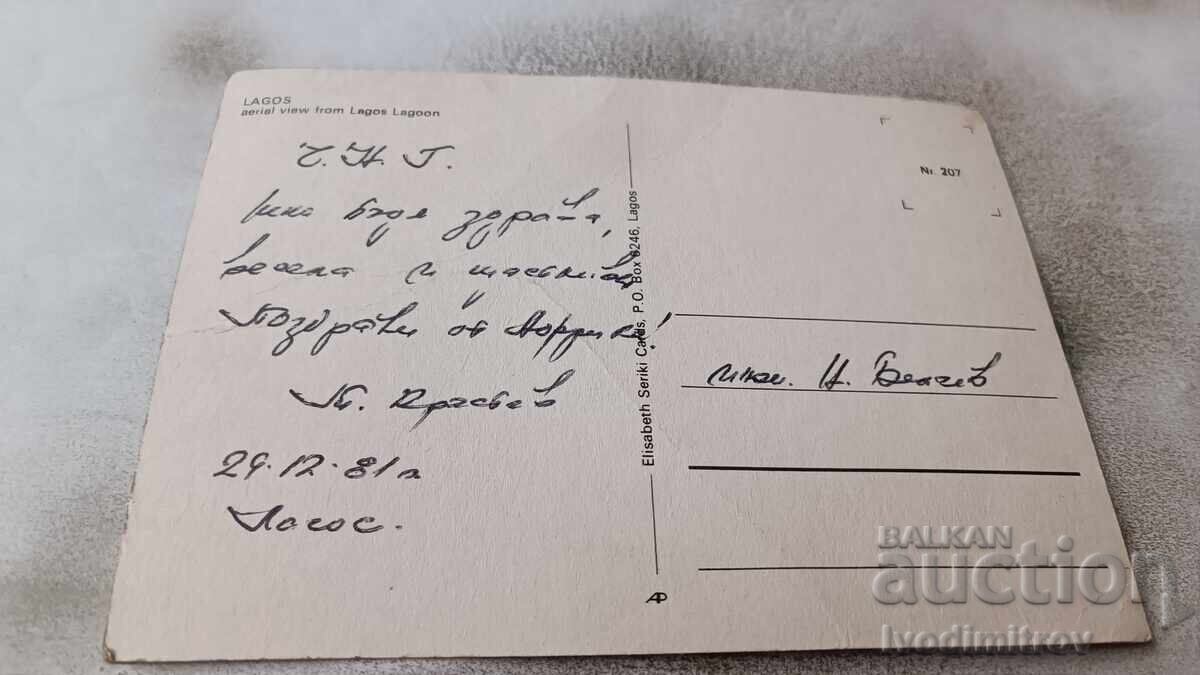 LAGOS
aerial view from Lagos Lagoon
Ч. Н. Г.
бъди здрава,
весела и щастлива
Поздрави от Африка!
Кръстев
29.12.81 г.
Лагос.
Elisabeth Seriki Cards, P.O. Box 6246, Lagos
Nr. 207
инж. Н. Белчев
BALKAN
auction
Ivodimitrov